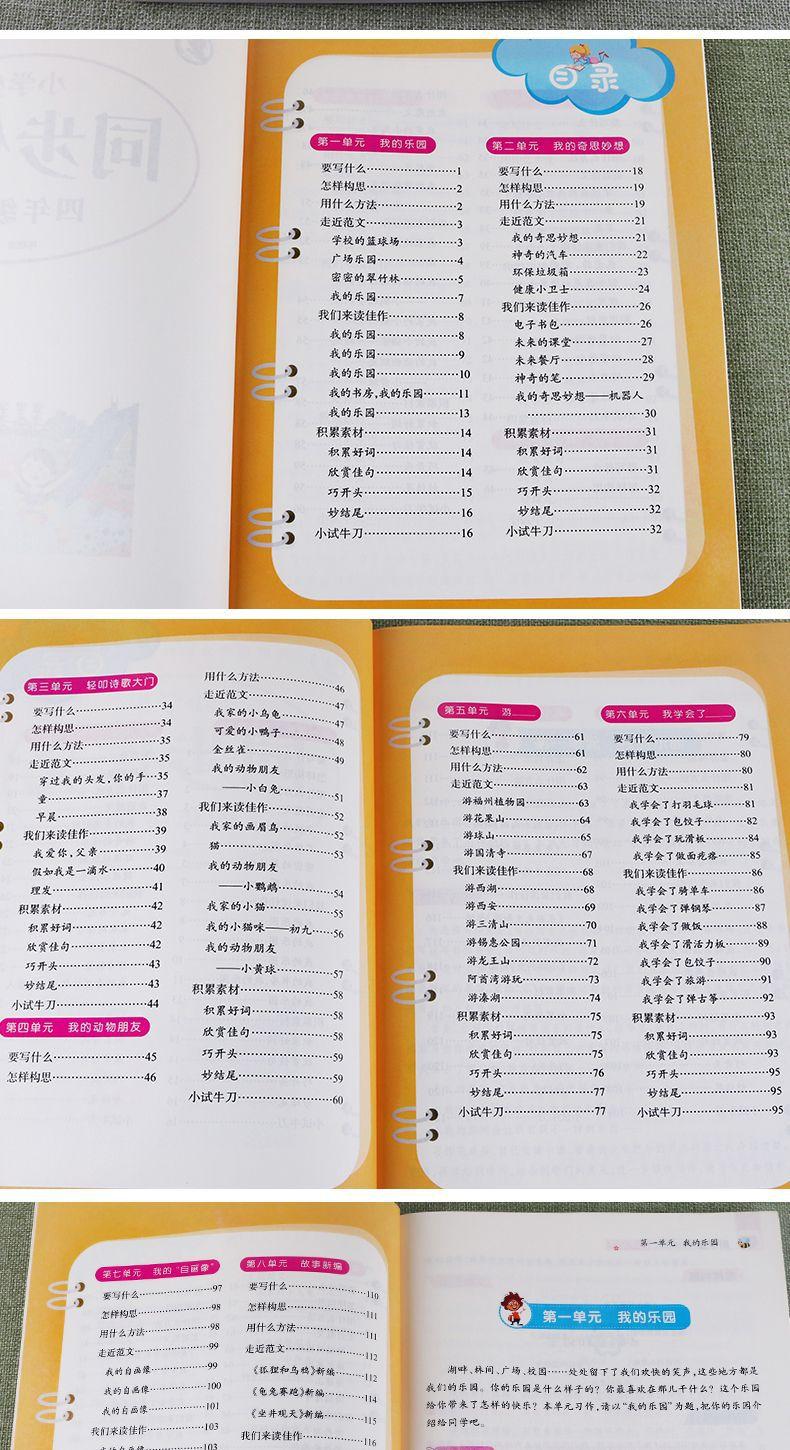 目录
第一单元 我的乐园
要写什么………………………1
怎样构思………………………2
用什么方法……………………2
走近范文………………………3
学校的篮球场………………3
广场乐园……………………4
密密的翠竹林………………5
我的乐园……………………7
我们来读佳作…………………8
我的乐园……………………8
我的乐园……………………9
我的乐园……………………10
我的书房,我的乐园…………11
我的乐园……………………13
积累素材………………………14
积累好词……………………14
欣赏佳句……………………14
巧开头………………………15
妙结尾………………………16
小试牛刀………………………16
第二单元 我的奇思妙想
要写什么………………………18
怎样构思………………………19
用什么方法……………………19
走近范文………………………21
我的奇思妙想………………21
神奇的汽车…………………22
环保垃圾箱…………………23
健康小卫士…………………24
我们来读佳作…………………26
电子书包……………………26
未来的课堂…………………27
未来餐厅……………………28
神奇的笔……………………29
我的奇思妙想——机器人
………………………………30
积累素材………………………31
积累好词……………………31
欣赏佳句……………………31
巧开头………………………32
妙结尾………………………32
小试牛刀………………………32
第三单元 轻叩诗歌大门
要写什么………………………34
怎样构思………………………34
用什么方法……………………35
走近范文………………………35
穿过我的头发,你的手…35
童……………………………37
早晨…………………………38
我们来读佳作…………………39
我爱你,父亲………………39
假如我是一滴水……………40
理发…………………………41
积累素材………………………42
积累好词……………………42
欣赏佳句……………………42
巧开头………………………43
妙结尾………………………43
小试牛刀………………………44
第四单元 我的动物朋友
要写什么………………………45
怎样构思………………………46
用什么方法……………………46
走近范文………………………47
我家的小乌龟………………47
可爱的小鸭子………………48
金丝雀………………………49
我的动物朋友
——小白兔…………………51
我们来读佳作…………………52
我家的画眉鸟………………52
猫……………………………53
我的动物朋友
——小鹦鹉…………………54
我家的小猫…………………55
我的小猫咪——初九………56
我的动物朋友
——小黄球…………………57
积累素材………………………58
积累好词……………………58
欣赏佳句……………………58
巧开头………………………59
妙结尾………………………59
小试牛刀………………………60
第五单元 游____
要写什么………………………61
怎样构思………………………61
用什么方法……………………62
走近范文………………………63
游福州植物园………………63
游花果山……………………64
游球山………………………65
游国清寺……………………67
我们来读佳作…………………68
游西湖………………………68
游西安………………………69
游三清山……………………70
游锡惠公园…………………71
游龙王山……………………72
阿首湾游玩…………………73
游溱湖………………………74
积累素材………………………75
积累好词……………………75
欣赏佳句……………………75
巧开头………………………76
妙结尾………………………77
小试牛刀………………………77
第六单元 我学会了____
要写什么………………………79
怎样构思………………………80
用什么方法……………………80
走近范文………………………81
我学会了打羽毛球…………81
我学会了包饺子……………82
我学会了玩滑板……………84
我学会了做面疙瘩…………85
我们来读佳作…………………86
我学会了骑单车……………86
我学会了弹钢琴……………87
我学会了做饭………………88
我学会了滑活力板…………89
我学会了包饺子……………90
我学会了旅游………………91
我学会了弹古筝……………92
积累素材………………………93
积累好词……………………93
欣赏佳句……………………93
巧开头………………………95
妙结尾………………………95
小试牛刀………………………95
第七单元 我的“自画像”
要写什么………………………97
怎样构思………………………98
用什么方法……………………98
走近范文………………………99
我的自画像…………………99
我的自画像…………………100
我的自画像…………………101
我们来读佳作…………………103
我的自画像…………………103
第八单元 故事新编
要写什么………………………110
怎样构思………………………111
用什么方法……………………111
走近范文………………………112
《狐狸和乌鸦》新编………112
《龟兔赛跑》新编…………114
《坐井观天》新编…………115
我们来读佳作…………………116
第一单元 我的乐园
第一单元 我的乐园
湖畔、林间、广场、校园……处处留下了我们欢快的笑声,这些地方都是
我们的乐园。你的乐园是什么样子的?你最喜欢在那儿干什么?这个乐园
给你带来了怎样的快乐?本单元习作,请以“我的乐园”为题,把你的乐园介
绍给同学吧。